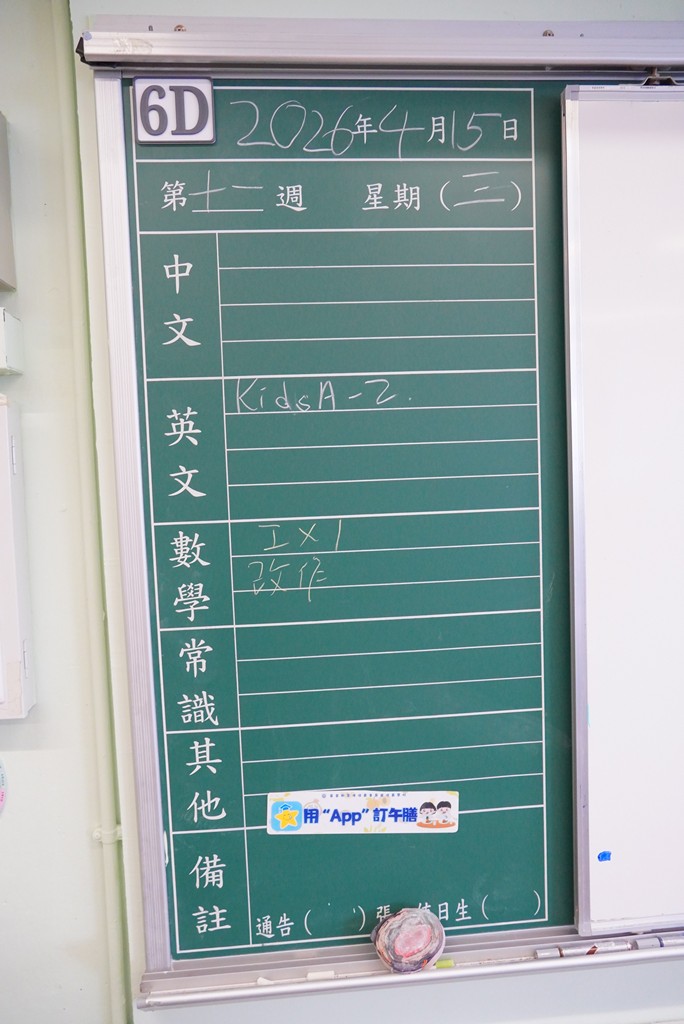 6D 2026年4月15日
第十二週 星期（三）
中文
英文 KidsA-2.
數學 工×1
改作
常識
其他
用“App”訂午膳
備註 通告（ ）張 值日生（ ）